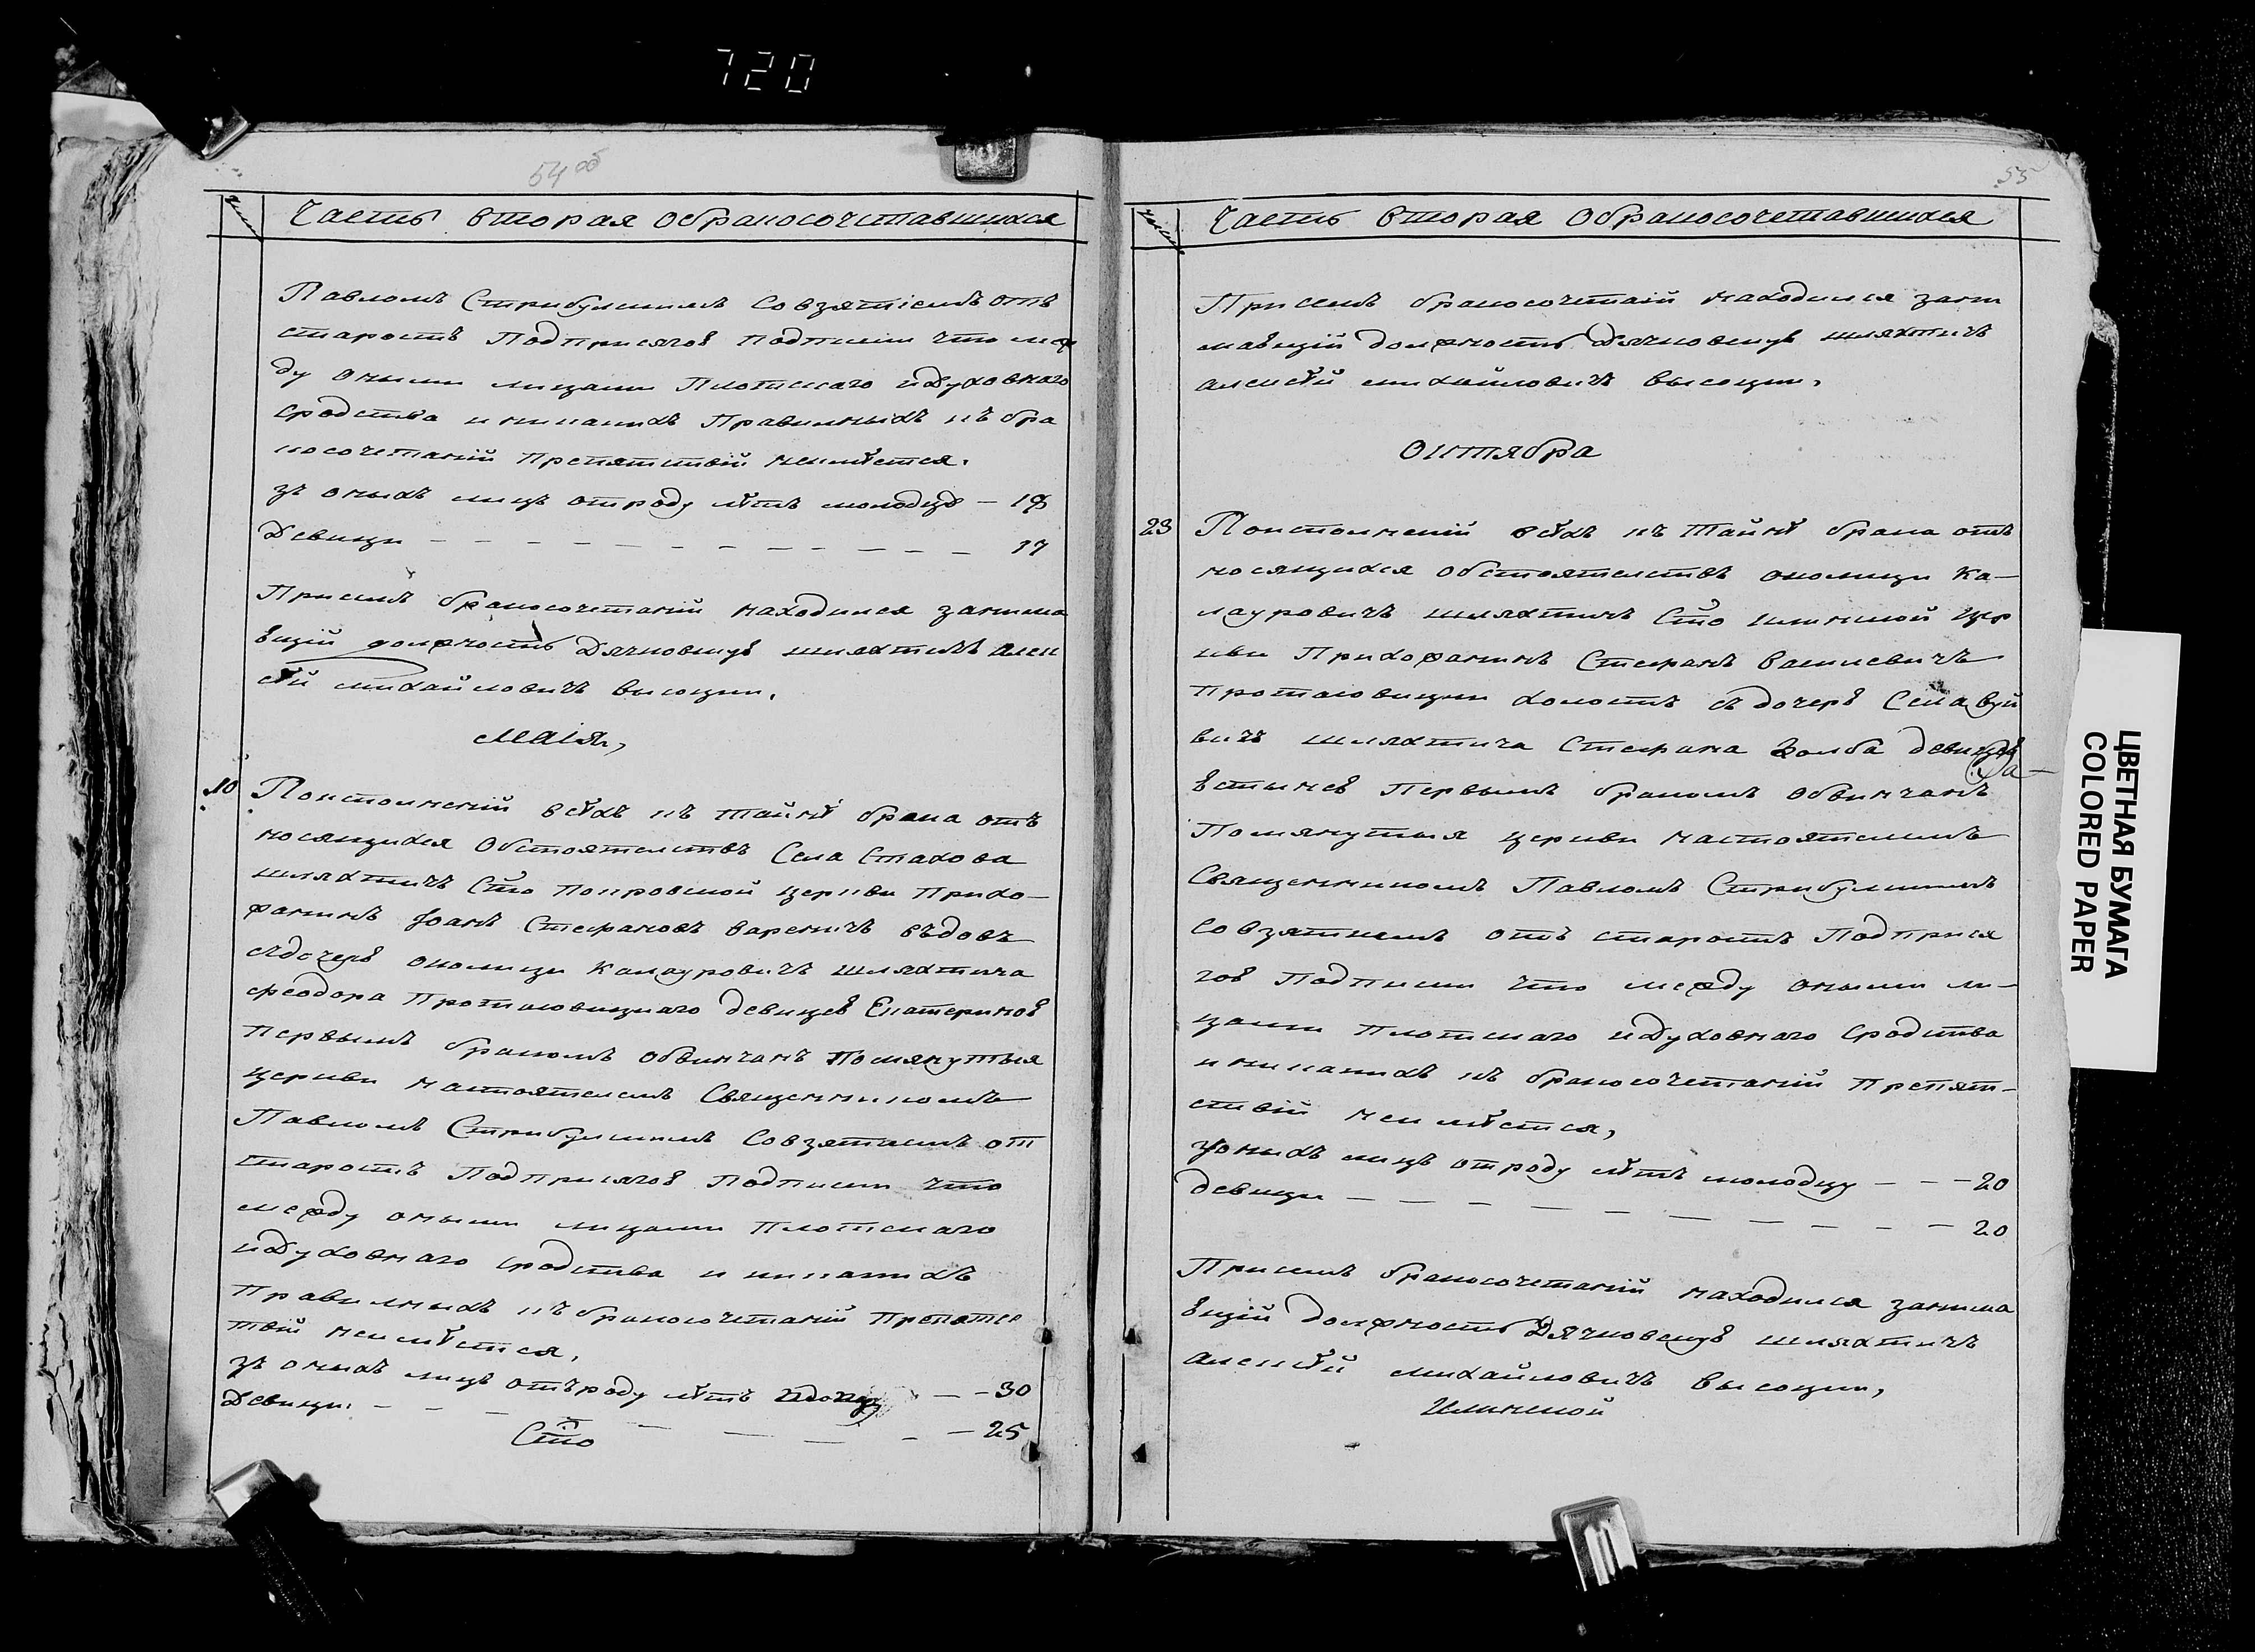 720
54 об
Часть вторая обраносочетавшихся
Павломъ Стрибульскимъ Совзятіемъ отъ
старостъ Подприсягоѣ подписки что меж
ду оными лицами Плотскаго идуховнаго
сродства иникакихъ Правильныхъ къ бра
косочетаній Препятствій неимѣется.
зъ оныхъ лицъ отроду лѣтъ молодцъ –
Девицы – 17
Присемъ бракосочетаній находился занима
вщій должность Дячковскую шляхтичъ алек
сѣй михайловичъ высоцки,
маія,
10
Поисполненій всѣхъ къ тайнѣ брака отъ
носящихся Обстоятельствъ Села Стахова
шляхтичъ Сто Покровской церкви Прихо–
жанинъ Іоанъ Стефановъ вареничъ въдовъ
сьдочерѣ околицы Калауровичъ шляхтича
феодора Протасовицкаго девицеѣ Екатериноѣ
первымъ бракомъ обвинчанъ помянутыя
церкви настоятелемъ Священникомъ
Павломъ Стрибульскимъ Совзятиемъ от
старостъ Подприсягоѣ Подписки что
между оными лицами плотскаго
идуховнаго сродства и никакихъ
Правилныхъ къ бракосочетаній Препятс
твій неимѣется,
зъ оныхъ лицъ отъроду лѣтъ – – 30
Девицы. – 25
Сто
55
Часть вторая Обраносочетавшихся
Присемъ бракосочетаній находился зани
мавщій должность Дячковскую шляхтичъ
алексѣй михайловичъ высоцки,
Октября
23
Поисполненій всѣхъ къ Тайнѣ брака отъ
носящихся обстоятелствъ околицы Ка–
лауровичъ шляхтичъ Сто илинской цер
кви Прихожанинъ Стефанъ василевичъ
протасовицки холостъ сь дочерѣ Села вуй
вичъ шляхтича Стефана Колба девицеѣ
Ѳа–
встынеѣ Первымъ бракомъ обвинчанъ
Помянутыя церкви настоятелемъ
Священникомъ Павломъ Стрибульскимъ
Совзятиемъ отъ старостъ Подприся
гоѣ Подписки что между оными ли–
цами плотскаго идуховнаго сродства
иникакихъ къ бракосочетаній Препят–
ствій неимѣется,
зъоныхъ лицъ отроду лѣтъ молодцу – – – 20
девицы – 20
Присемъ бракосочетаній находился занима
вщій должность Дячковскую шляхтичъ
алексѣй михайловичъ высоцки,
илинской
ЦВЕТНАЯ БУМАГА
COLORED PAPER